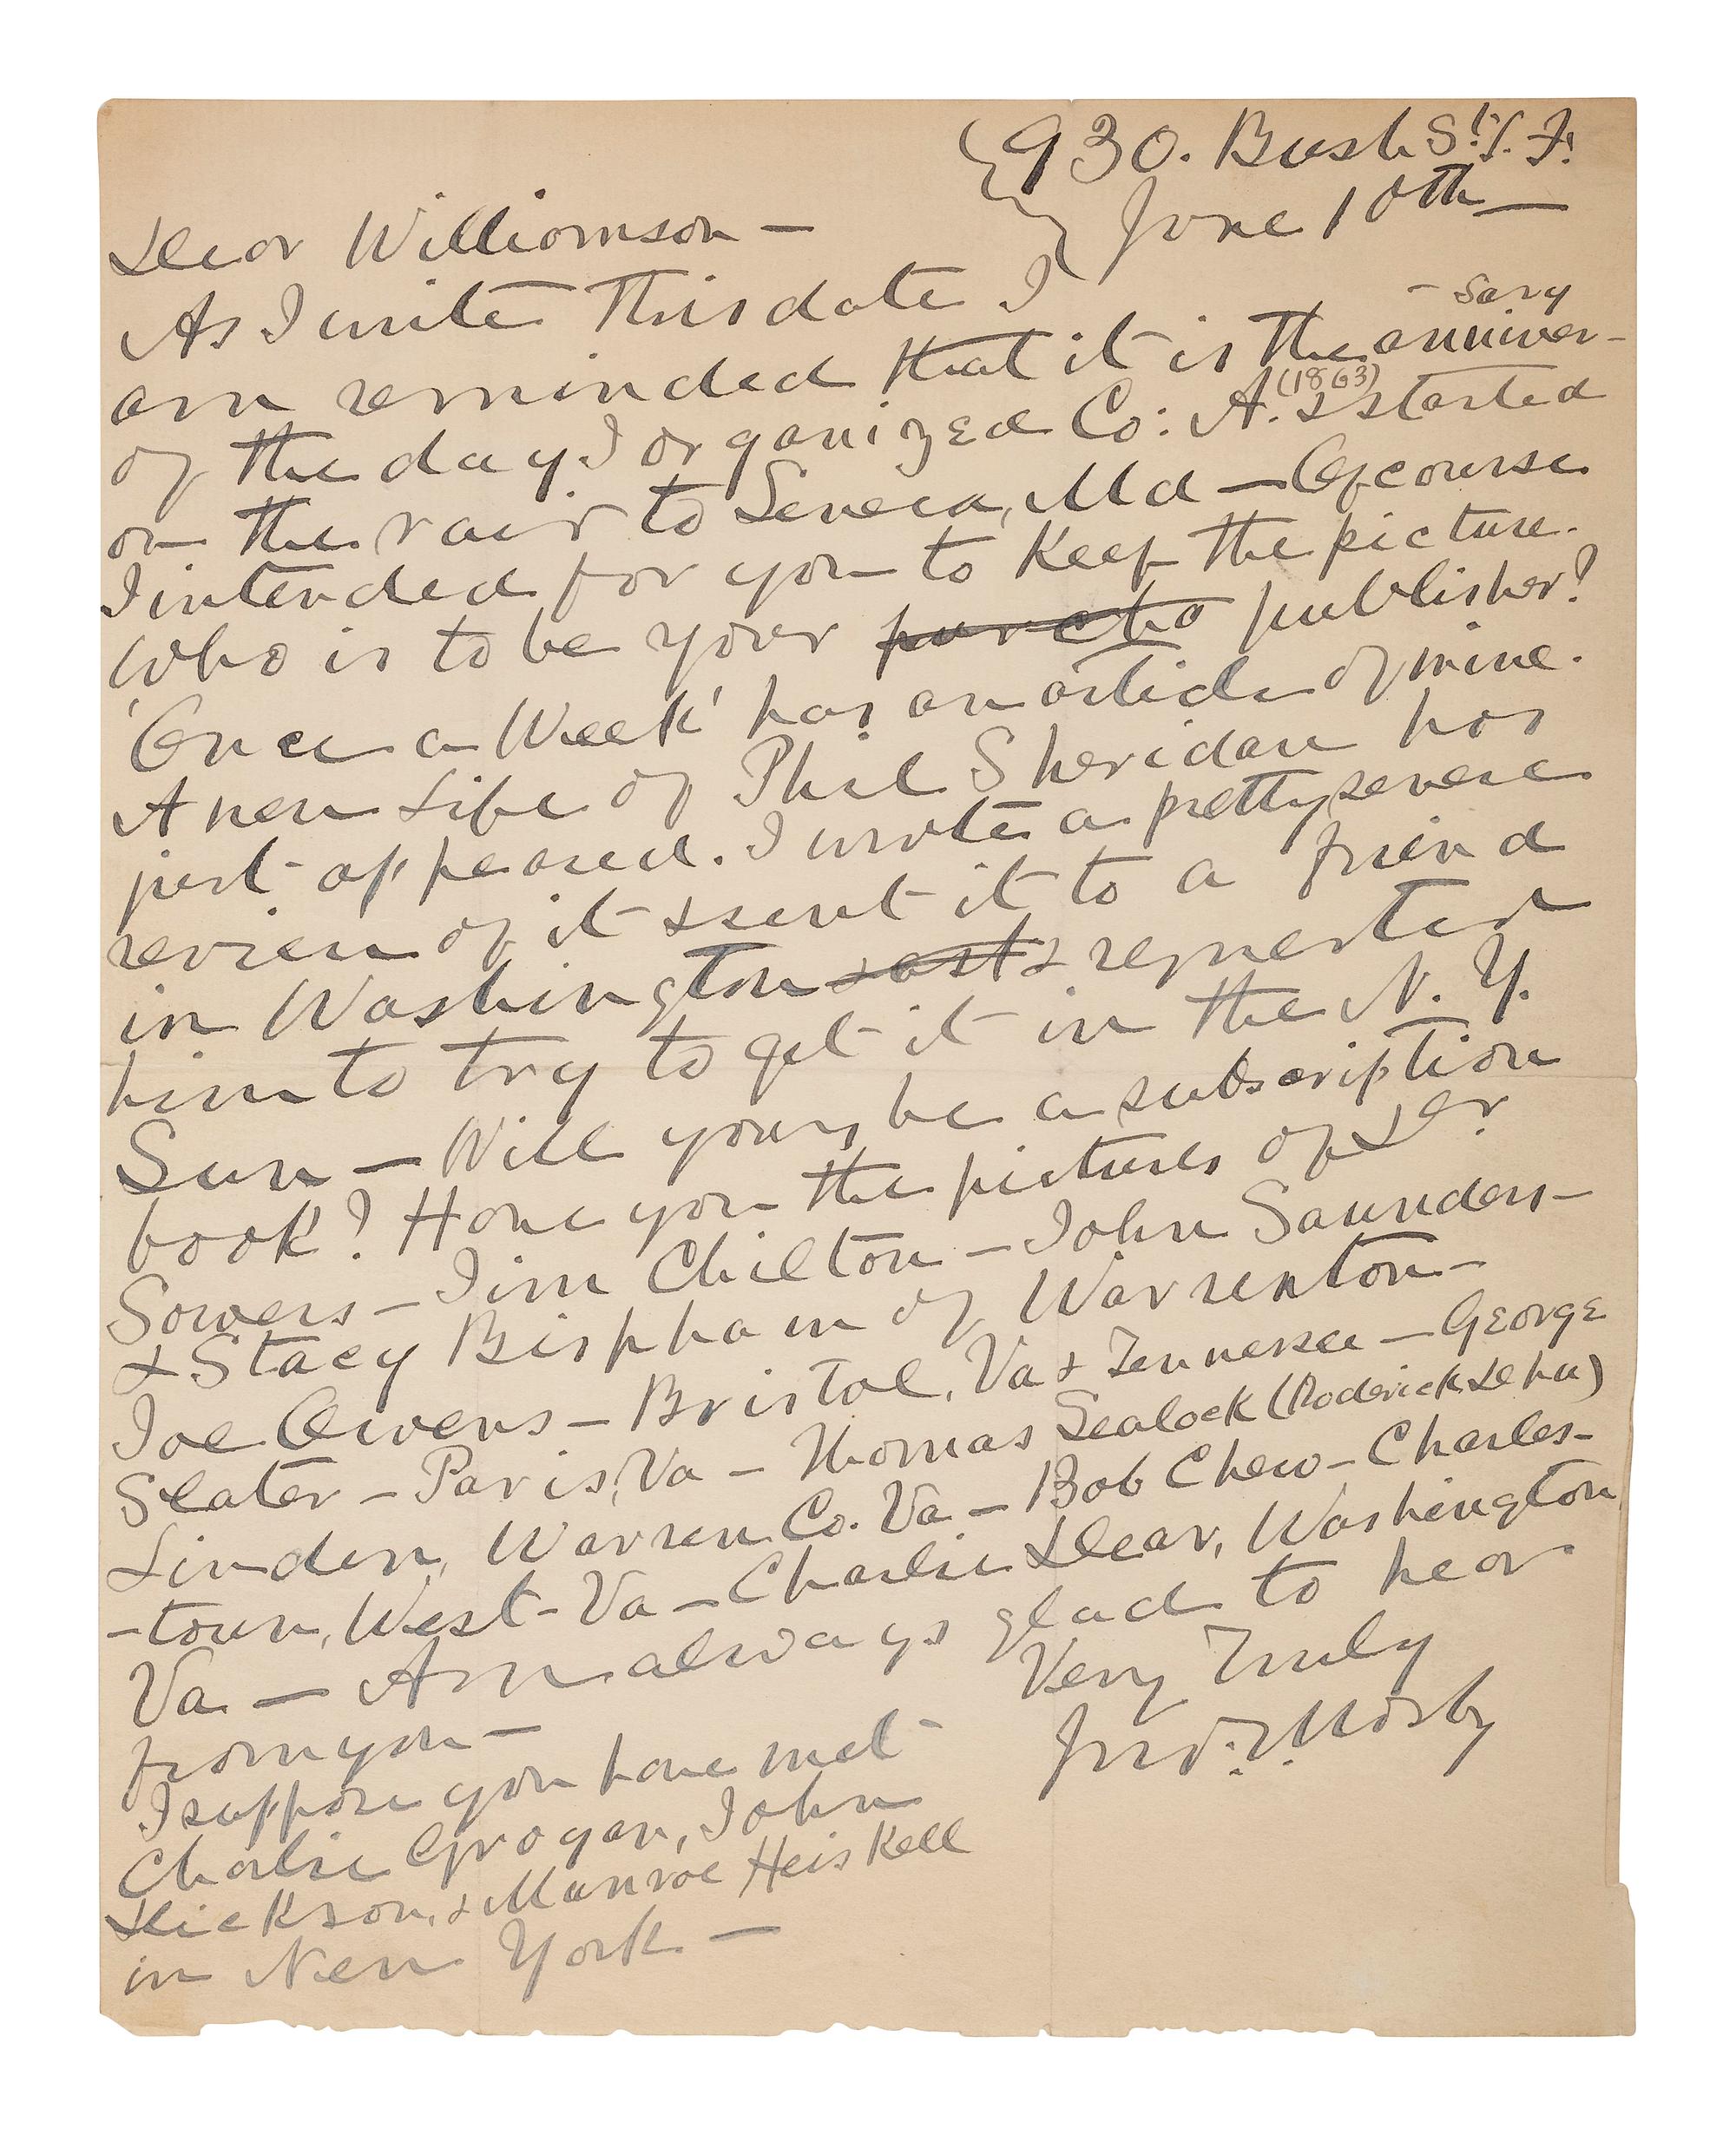 930. Bush St. S. F.
June 10th —
Dear Williamson —
As I write this date I
am reminded that it is the anniver-
- sary
of the day I organized Co: A. (1863) & started
on the raid to Seneca, Md — Of course
I intended for you to keep the picture.
Who is to be your publisher?
'Once a Week' has an article of mine.
A new Life of Phil Sheridan has
just appeared. I wrote a pretty severe
review of it & sent it to a friend
in Washington & requested
him to try to get it in the N. Y.
Sun — Will yours be a subscription
book? Have you the pictures of Dr.
Sowers — Jim Chilton — John Saunders —
& Stacy Bispham of Warrenton —
Joe Owens — Bristol, Va & Tennessee — George
Slater — Paris, Va — Thomas Sealock (Roderick Dehu)
Linden, Warren Co. Va. — Bob Chew — Charles-
-town, West-Va — Charlie Dear, Washington
Va — Am always glad to hear
from you —
Very Truly
Jno. S. Mosby
I suppose you have met
Charlie Grogan, John
Dickson, & Munroe Heiskell
in New York —